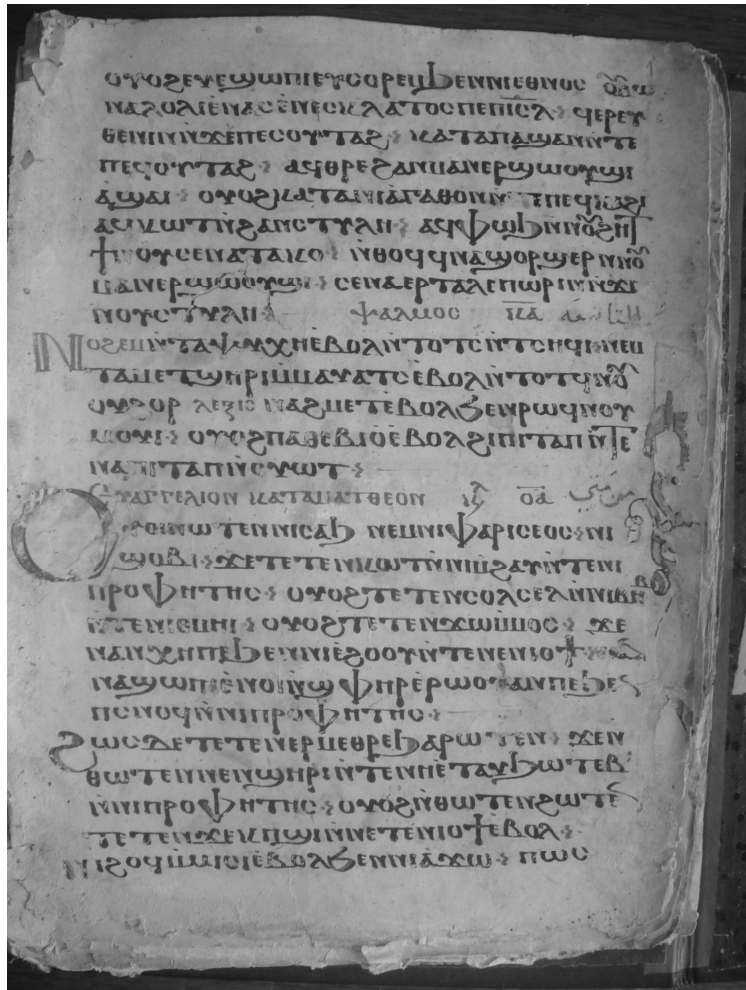 ⲟⲩⲟϩⲉⲩⲉϣⲱⲡⲓⲉⲩⲥⲟⲣⲉⲙϧⲉⲛⲛⲓⲉⲑⲛⲟⲥ
ⲛⲁⲗⲟⲗⲓⲉⲛⲁⲥⲉ̀ⲛⲉⲥⲕⲗⲁⲧⲟⲥⲡⲉⲡⲓ̅ⲥ̅ⲗ̅ : ϥⲉⲣⲉⲩ
ⲑⲉⲛⲓⲛⲛ̀ϫⲉⲡⲉⲥⲟⲩⲧⲁϩ : ⲕⲁⲧⲁⲡⲁϣⲁⲓⲛ̀ⲧⲉ
ⲡⲉⲥⲟⲩⲧⲁϩ : ⲁϥⲑⲣⲉϩⲁⲛⲙⲁⲛⲉⲣϣⲱⲟⲩϣⲓ
ⲁ̀ϣⲁⲓ : ⲟⲩⲟϩⲕⲁⲧⲁⲛⲓⲁ̀ⲅⲁⲑⲟⲛⲛ̀ⲧⲉⲡⲉϥⲕⲁϩⲓ
ⲁϥⲕⲱⲧⲛ̀ϩⲁⲛⲥⲧⲩⲗⲏ : ⲁϥⲫⲱϧⲛ̀ⲛⲟⲩϩⲏⲧ
ϯⲛⲟⲩⲥⲉⲛⲁⲧⲁⲕⲟ : ⲛ̀ⲑⲟϥϥⲛⲁϣⲟⲣϣⲉⲣⲛ̀ⲛⲟⲩ
ⲙⲁⲛⲉⲣϣⲱⲟⲩϣⲓ : ⲥⲉⲛⲁⲉⲣⲧⲁⲗⲉⲡⲱⲣⲓⲛ̀ⲛϫⲉ
ⲛⲟⲩⲥⲧⲩⲗⲏ : ⲯⲁⲗⲙⲟⲥ ⲕ̅ⲁ̅
Ⲛⲟϩⲉⲙⲛ̀ⲧⲁⲯⲩⲭⲏⲉ̀ⲃⲟⲗⲛ̀ⲧⲟⲧⲥⲛ̀ⲧⲥⲏϥⲓ : ⲛⲉⲙ
ⲧⲁⲙⲉⲧϣⲏⲣⲓⲙ̀ⲙⲁⲩⲁⲧⲥⲉ̀ⲃⲟⲗⲛ̀ⲧⲟⲧϥⲛ̀ⲟⲩ
ⲟⲩϩⲟⲣ ⲗⲉⲝⲓⲥ ⲛⲁϩⲙⲉⲧⲉ̀ⲃⲟⲗϧⲉⲛⲣⲱϥⲛⲟⲩ
ⲙⲟⲩⲓ : ⲟⲩⲟϩⲡⲁⲑⲉⲃⲓⲟⲉ̀ⲃⲟⲗϩⲓⲡⲓⲧⲁⲡⲛ̀ⲧⲉ
ⲛⲁⲡⲓⲧⲁⲡⲛ̀ⲟⲩⲱⲧ :
ⲉⲩⲁⲅⲅⲉⲗⲓⲟⲛ ⲕⲁⲧⲁⲙⲁⲧⲑⲉⲟⲛ ⲟ̅ⲁ̅
Ⲟⲩⲟⲓⲛⲱⲧⲉⲛⲛⲓⲥⲁϧ ⲛⲉⲙⲛⲓⲫⲁⲣⲓⲥⲉⲟⲥ : ⲛⲓ
ϣⲟⲃⲓ : ϫⲉⲧⲉⲧⲉⲛⲕⲱⲧⲛ̀ⲛⲓⲙ̀ϩⲁⲩⲛ̀ⲧⲉⲛⲓ
ⲡⲣⲟⲫⲏⲧⲏⲥ : ⲟⲩⲟϩⲧⲉⲧⲉⲛⲥⲟⲗⲥⲉⲗⲛ̀ⲛⲓⲃⲏ
ⲛ̀ⲧⲉⲛⲓⲑⲙⲏⲓ : ⲟⲩⲟϩⲧⲉⲧⲉⲛϫⲱⲙ̀ⲙⲟⲥ : ϫⲉ
ⲛⲁⲛⲭⲏⲡⲉϧⲉⲛⲛⲓⲉ̀ϩⲟⲟⲩⲛ̀ⲧⲉⲛⲉⲛⲓⲟϯ
ⲛⲁⲛⲛⲁϣⲱⲡⲓⲉ̀ⲛⲟⲓⲛ̀ϣⲫⲏⲣⲉ̀ⲣⲱⲟⲩⲁⲛⲡⲉϧⲉⲛ
ⲡⲥⲛⲟϥⲛ̀ⲛⲓⲡⲣⲟⲫⲏⲧⲏⲥ :
ϩⲱⲥⲇⲉⲧⲉⲧⲉⲛⲉⲣⲙⲉⲑⲣⲉϧⲁⲣⲱⲧⲉⲛ : ϫⲉⲛ
ⲑⲱⲧⲉⲛⲛⲉⲛϣⲏⲣⲓⲛ̀ⲧⲉⲛⲏⲉⲧⲁⲩϧⲱⲧⲉⲃ
ⲛ̀ⲛⲓⲡⲣⲟⲫⲏⲧⲏⲥ : ⲟⲩⲟϩⲛ̀ⲑⲱⲧⲉⲛϩⲱⲧⲉⲛ
ⲧⲉⲧⲉⲛϫⲉⲕⲡϣⲓⲛ̀ⲛⲉⲧⲉⲛⲓⲟϯⲉ̀ⲃⲟⲗ :
ⲛⲓϩⲟϥⲙ̀ⲙⲓⲥⲓⲉ̀ⲃⲟⲗϧⲉⲛⲛⲓⲁ̀ϫⲱ : ⲡⲱⲥ